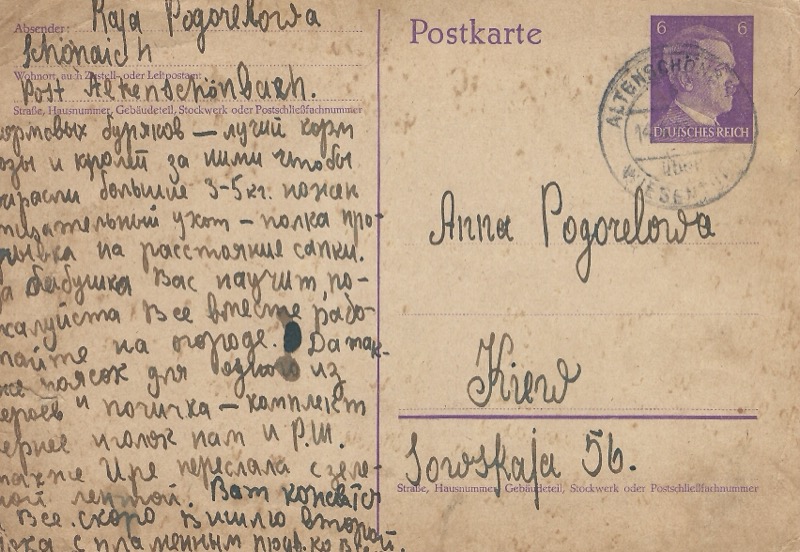 Absender: Kaja Pogorelowa
Schönaich
Wohnort, auch Zustell- oder Leitpostamt
Post Altenschönbach.
Straße, Hausnummer, Gebäudeteil, Stockwerk oder Postschließfachnummer
ормовых буряков — лучий корм
озы и кролей за ними чтобы
ырасли большие 3-5 кг. ножен
ухот — полка про-
рывка на расстояние сапки.
а бабушка Вас научит, по-
жалуйста Все вместе рабо-
тайте на огороде. Да так-
же поясок для одного из
ероев и — комплект
иголок нам и Р.Ш.
также Ире переслала с зеле-
ной лентой. Вот
Все. скоро вишлю второй
с пламенным
Postkarte
6 6
DEUTSCHES REICH
ALTENSCHÖNBACH
über
Anna Pogorelowa
Kiew
Sowskaja 5б.
Straße, Hausnummer, Gebäudeteil, Stockwerk oder Postschließfachnummer